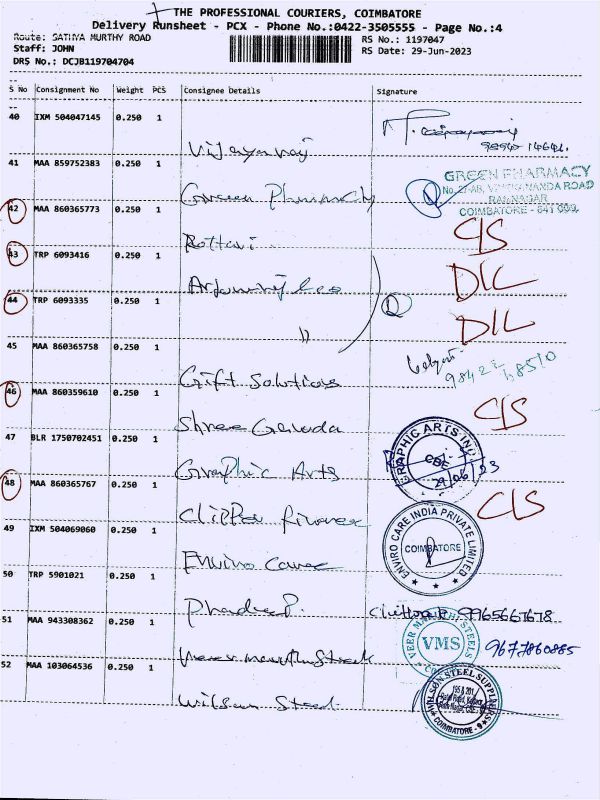 THE PROFESSIONAL COURIERS, COIMBATORE
Delivery Runsheet - PCX - Phone No.:0422-3505555 - Page No.:4
Route: SATHYA MURTHY ROAD
RS No.: 1197047
Staff: JOHN
RS Date: 29-Jun-2023
DRS No.: DCJB119704704
S No Consignment No Weight PCS Consignee Details Signature
40 IXM 504047145 0.250 1
Vijayaraj
41 MAA 859752383 0.250 1
Green Pharmacy
GREEN PHARMACY
RAMNAGAR
COIMBATORE - 641 009.
42 MAA 860365773 0.250 1
Kottari
C/S
43 TRP 6093416 0.250 1
D/L
44 TRP 6093335 0.250 1
"
D/L
45 MAA 860365758 0.250 1
Gift Solutions
46 MAA 860359610 0.250 1
Shree Garuda
C/S
47 BLR 1750702451 0.250 1
Graphic Arts
GRAPHIC ARTS
48 MAA 860365767 0.250 1
Clipper Finance
C/S
49 IXM 504069060 0.250 1
Enviro Care
ENVIRO CARE INDIA PRIVATE LIMITED
COIMBATORE
50 TRP 5901021 0.250 1
9965667678
51 MAA 943308362 0.250 1
Veer Maruthi Steels
VEER MARUTHI STEELS
VMS
9677860885
52 MAA 103064536 0.250 1
Wilson Steel
WILSON STEEL SUPPLIERS
COIMBATORE - 9